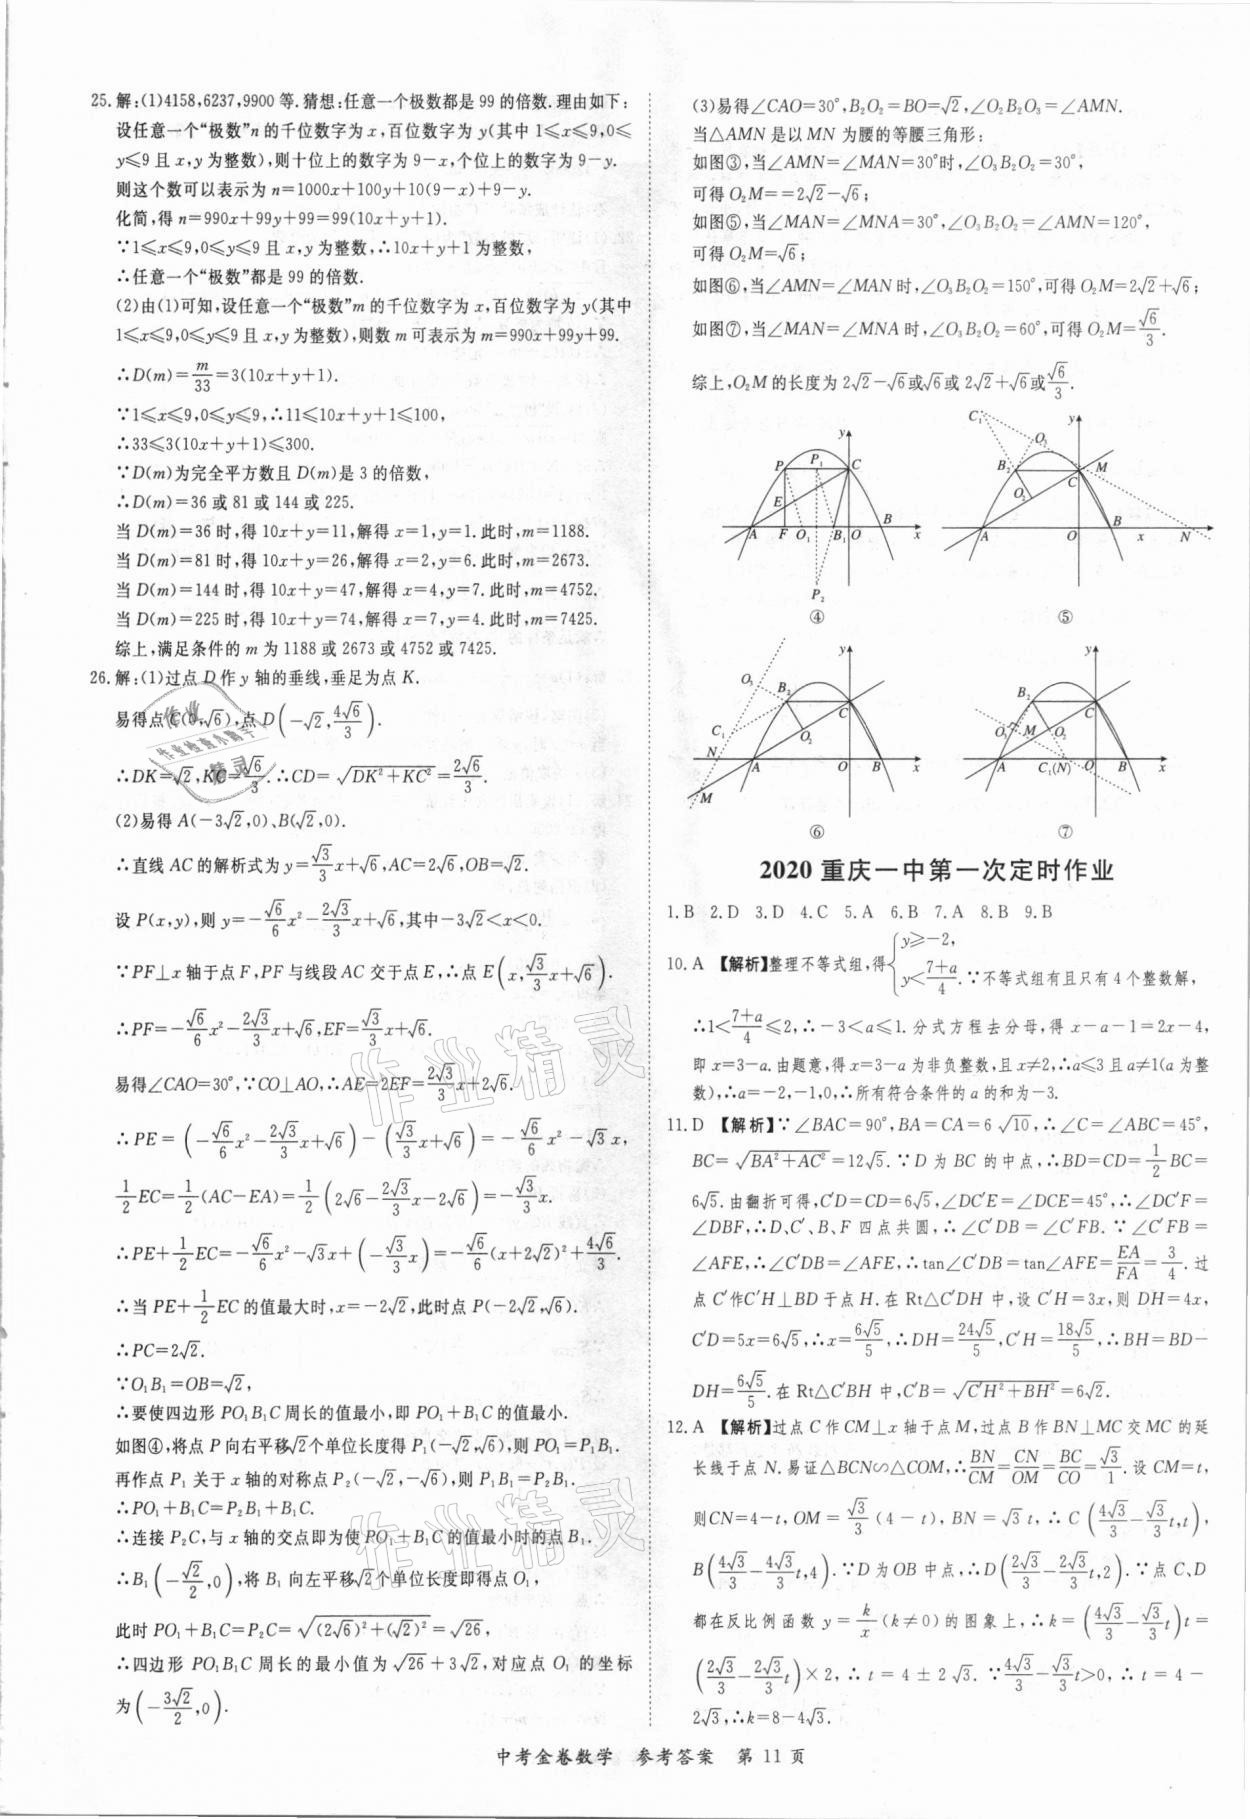 25. 解:(1)4158,6237,9900 等.猜想:任意一个极数都是 99 的倍数.理由如下:
设任意一个“极数”n 的千位数字为 x,百位数字为 y(其中 1≤x≤9,0≤
y≤9 且 x,y 为整数),则十位上的数字为 9-x,个位上的数字为 9-y.
则这个数可以表示为 n=1000x+100y+10(9-x)+9-y.
化简,得 n=990x+99y+99=99(10x+y+1).
∵1≤x≤9,0≤y≤9 且 x,y 为整数,∴10x+y+1 为整数,
∴任意一个“极数”都是 99 的倍数.
(2)由(1)可知,设任意一个“极数”m 的千位数字为 x,百位数字为 y(其中
1≤x≤9,0≤y≤9 且 x,y 为整数),则数 m 可表示为 m=990x+99y+99.
∴D(m)=m/33=3(10x+y+1).
∵1≤x≤9,0≤y≤9,∴11≤10x+y+1≤100,
∴33≤3(10x+y+1)≤300.
∵D(m)为完全平方数且 D(m)是 3 的倍数,
∴D(m)=36 或 81 或 144 或 225.
当 D(m)=36 时,得 10x+y=11,解得 x=1,y=1.此时,m=1188.
当 D(m)=81 时,得 10x+y=26,解得 x=2,y=6.此时,m=2673.
当 D(m)=144 时,得 10x+y=47,解得 x=4,y=7.此时,m=4752.
当 D(m)=225 时,得 10x+y=74,解得 x=7,y=4.此时,m=7425.
综上,满足条件的 m 为 1188 或 2673 或 4752 或 7425.
26. 解:(1)过点 D 作 y 轴的垂线,垂足为点 K.
易得点 C(0,√6),点 D(-√2,4√6/3).
∴DK=√2,KC=√6/3.∴CD=√(DK²+KC²)=2√6/3.
(2)易得 A(-3√2,0)、B(√2,0).
∴直线 AC 的解析式为 y=√3/3x+√6,AC=2√6,OB=√2.
设 P(x,y),则 y=-√6/6x²-2√3/3x+√6,其中-3√2<x<0.
∵PF⊥x 轴于点 F,PF 与线段 AC 交于点 E,∴点 E(x,√3/3x+√6).
∴PF=-√6/6x²-2√3/3x+√6,EF=√3/3x+√6.
易得∠CAO=30°,∵CO⊥AO,∴AE=2EF=2√3/3x+2√6.
∴PE=(-√6/6x²-2√3/3x+√6)-(√3/3x+√6)=-√6/6x²-√3x,
1/2EC=1/2(AC-EA)=1/2(2√6-2√3/3x-2√6)=-√3/3x.
∴PE+1/2EC=-√6/6x²-√3x+(-√3/3x)=-√6/6(x+2√2)²+4√6/3.
∴当 PE+1/2EC 的值最大时,x=-2√2,此时点 P(-2√2,√6).
∴PC=2√2.
∵O₁B₁=OB=√2,
∴要使四边形 PO₁B₁C 周长的值最小,即 PO₁+B₁C 的值最小.
如图④,将点 P 向右平移√2个单位长度得 P₁(-√2,√6),则 PO₁=P₁B₁.
再作点 P₁ 关于 x 轴的对称点 P₂(-√2,-√6),则 P₁B₁=P₂B₁.
∴PO₁+B₁C=P₂B₁+B₁C.
∴连接 P₂C,与 x 轴的交点即为使 PO₁+B₁C 的值最小时的点 B₁.
∴B₁(-√2/2,0),将 B₁ 向左平移√2个单位长度即得点 O₁,
此时 PO₁+B₁C=P₂C=√((2√6)²+(√2)²)=√26,
∴四边形 PO₁B₁C 周长的最小值为√26+3√2,对应点 O₁ 的坐标
为(-3√2/2,0).
(3)易得∠CAO=30°,B₂O₂=BO=√2,∠O₂B₂O₃=∠AMN.
当△AMN 是以 MN 为腰的等腰三角形:
如图③,当∠AMN=∠MAN=30°时,∠O₃B₂O₂=30°,
可得 O₂M==2√2-√6;
如图⑤,当∠MAN=∠MNA=30°,∠O₃B₂O₂=∠AMN=120°,
可得 O₂M=√6;
如图⑥,当∠AMN=∠MAN 时,∠O₃B₂O₂=150°,可得 O₂M=2√2+√6;
如图⑦,当∠MAN=∠MNA 时,∠O₃B₂O₂=60°,可得 O₂M=√6/3.
综上,O₂M 的长度为 2√2-√6或√6或 2√2+√6或√6/3.
y P P₁ C E A F O₁ B₁ O B x P₂
④
C₁ O₃ y B₂ M C O₂ A O B x N
⑤
y O₃ B₂ C₁ C O₂ N A O B x M
⑥
y B₂ C O₃ M O₂ A C₁(N) O B x
⑦
2020 重庆一中第一次定时作业
1.B 2.D 3.D 4.C 5.A 6.B 7.A 8.B 9.B
10.A 【解析】整理不等式组,得{y≥-2, y<(7+a)/4.∵不等式组有且只有 4 个整数解,
∴1<(7+a)/4≤2,∴-3<a≤1.分式方程去分母,得 x-a-1=2x-4,
即 x=3-a.由题意,得 x=3-a 为非负整数,且 x≠2,∴a≤3 且 a≠1(a 为整
数),∴a=-2,-1,0,∴所有符合条件的 a 的和为-3.
11.D 【解析】∵∠BAC=90°,BA=CA=6√10,∴∠C=∠ABC=45°,
BC=√(BA²+AC²)=12√5.∵D 为 BC 的中点,∴BD=CD=1/2BC=
6√5.由翻折可得,C′D=CD=6√5,∠DC′E=∠DCE=45°,∴∠DC′F=
∠DBF,∴D、C′、B、F 四点共圆,∴∠C′DB=∠C′FB.∵∠C′FB=
∠AFE,∴∠C′DB=∠AFE,∴tan∠C′DB=tan∠AFE=EA/FA=3/4.过
点 C′作C′H⊥BD 于点 H.在 Rt△C′DH 中,设 C′H=3x,则 DH=4x,
C′D=5x=6√5,∴x=6√5/5,∴DH=24√5/5,C′H=18√5/5,∴BH=BD-
DH=6√5/5.在 Rt△C′BH 中,C′B=√(C′H²+BH²)=6√2.
12.A 【解析】过点 C 作 CM⊥x 轴于点 M,过点 B 作 BN⊥MC 交 MC 的延
长线于点 N.易证△BCN∽△COM,∴BN/CM=CN/OM=BC/CO=√3/1.设 CM=t,
则CN=4-t,OM=√3/3(4-t),BN=√3t,∴C(4√3/3-√3/3t,t),
B(4√3/3-4√3/3t,4).∵D 为 OB 中点,∴D(2√3/3-2√3/3t,2).∵点 C、D
都在反比例函数 y=k/x(k≠0)的图象上,∴k=(4√3/3-√3/3t)t=
(2√3/3-2√3/3t)×2,∴t=4±2√3.∵4√3/3-√3/3t>0,∴t=4-
2√3,∴k=8-4√3.
中考金卷数学 参考答案 第 11 页
作业精灵
作业精灵